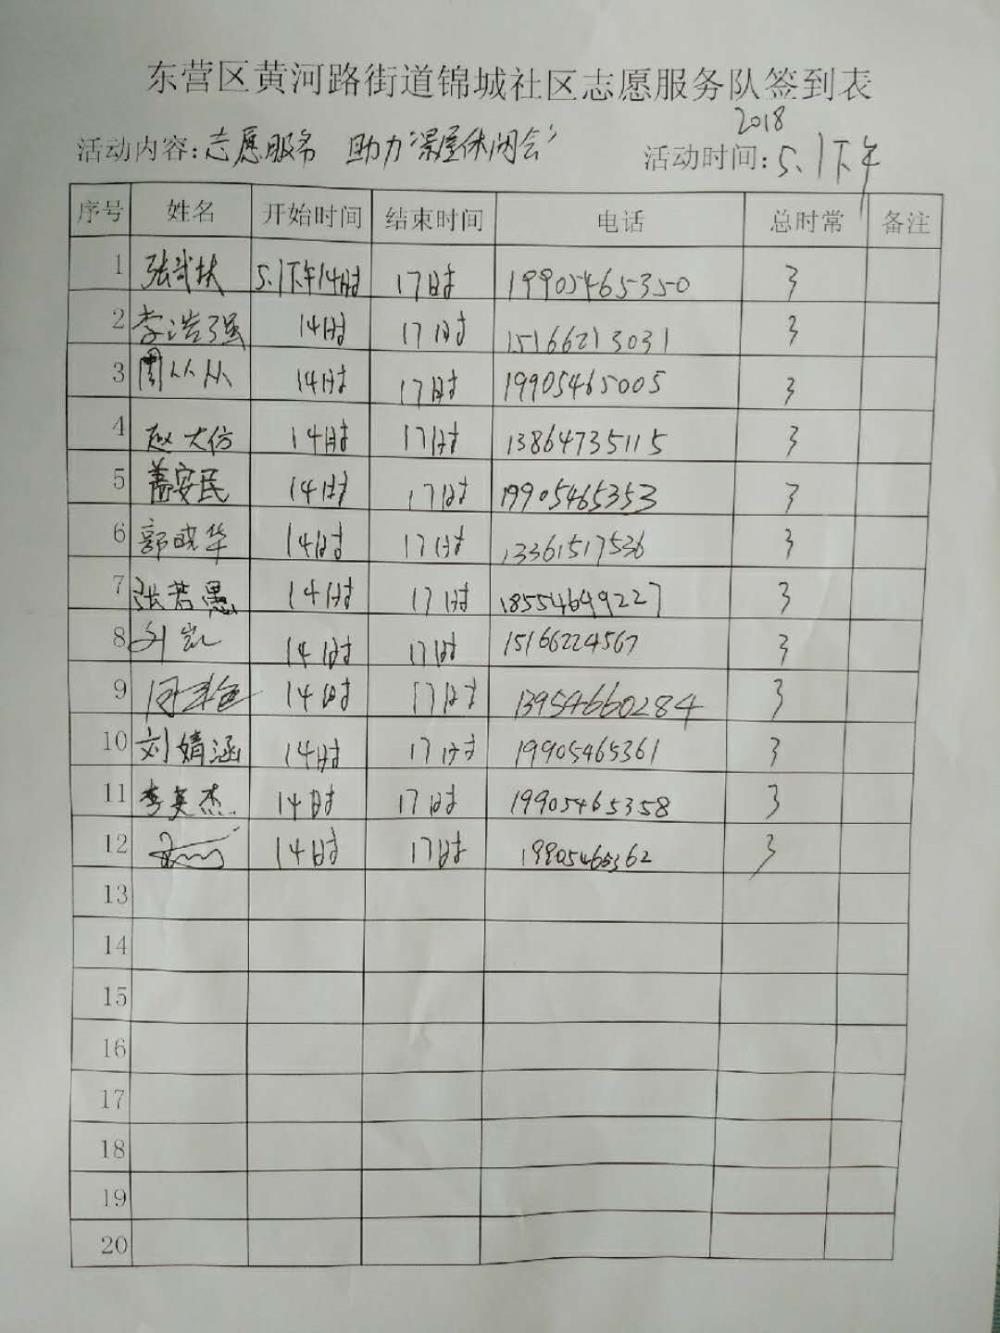 东营区黄河路街道锦城社区志愿服务队签到表
2018
活动内容:志愿服务 助力"深屋休闲会" 活动时间:5.1下午
序号 姓名 开始时间 结束时间 电话 总时常 备注
1 张武扶 5.1下午14时 17时 19905465350 3
2 李浩强 14时 17时 15166213031 3
3 周从从 14时 17时 19905465005 3
4 赵大信 14时 17时 13864735115 3
5 盖安民 14时 17时 19905465353 3
6 郭晓华 14时 17时 13361517536 3
7 张若愚 14时 17时 18554699227 3
8 刘凯 14时 17时 15166224567 3
9 14时 17时 13954660284 3
10 刘婧涵 14时 17时 19905465361 3
11 李英杰 14时 17时 19905465358 3
12 14时 17时 19905465362 3
13
14
15
16
17
18
19
20